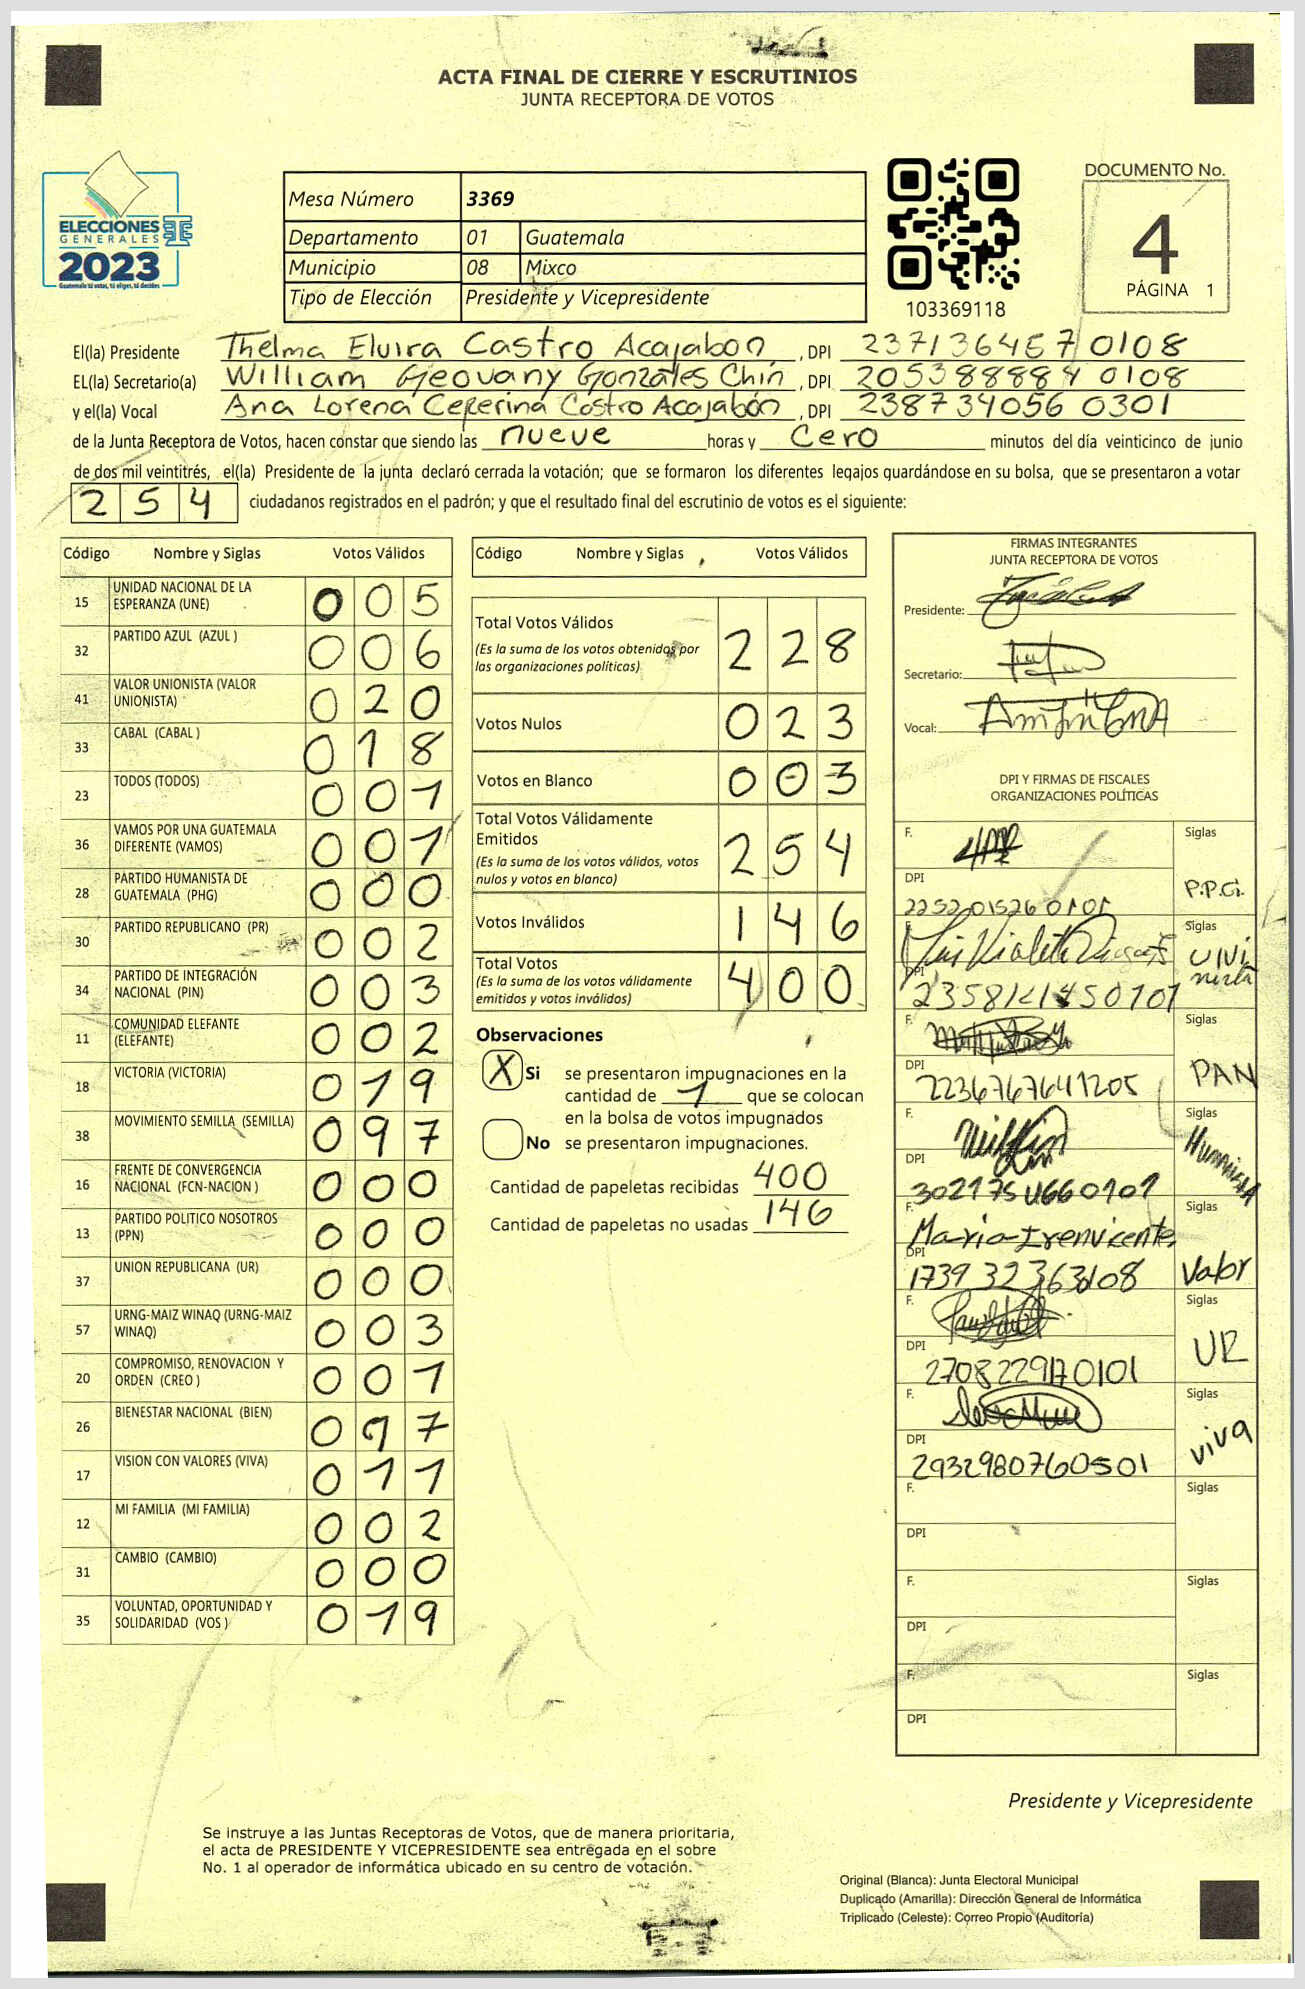 ACTA FINAL DE CIERRE Y ESCRUTINIOS
JUNTA RECEPTORA DE VOTOS
ELECCIONES
GENERALES
2023
Guatemala tú votas, tú eliges, tú decides
Mesa Número 3369
Departamento 01 Guatemala
Municipio 08 Mixco
Tipo de Elección Presidente y Vicepresidente
103369118
DOCUMENTO No.
4
PÁGINA 1
El(la) Presidente Thelma Elvira Castro Acajabon, DPI 2371364570108
EL(la) Secretario(a) William Geovany Gonzales Chin, DPI 2053888840108
y el(la) Vocal Ana Lorena Ceferina Castro Acajabón, DPI 2387340560301
de la Junta Receptora de Votos, hacen constar que siendo las nueve horas y cero minutos del día veinticinco de junio
de dos mil veintitrés, el(la) Presidente de la junta declaró cerrada la votación; que se formaron los diferentes legajos guardándose en su bolsa, que se presentaron a votar
254 ciudadanos registrados en el padrón; y que el resultado final del escrutinio de votos es el siguiente:
Código Nombre y Siglas Votos Válidos
15 UNIDAD NACIONAL DE LA ESPERANZA (UNE) 005
32 PARTIDO AZUL (AZUL ) 006
41 VALOR UNIONISTA (VALOR UNIONISTA) 020
33 CABAL (CABAL ) 018
23 TODOS (TODOS) 001
36 VAMOS POR UNA GUATEMALA DIFERENTE (VAMOS) 001
28 PARTIDO HUMANISTA DE GUATEMALA (PHG) 000
30 PARTIDO REPUBLICANO (PR) 002
34 PARTIDO DE INTEGRACIÓN NACIONAL (PIN) 003
11 COMUNIDAD ELEFANTE (ELEFANTE) 002
18 VICTORIA (VICTORIA) 019
38 MOVIMIENTO SEMILLA (SEMILLA) 097
16 FRENTE DE CONVERGENCIA NACIONAL (FCN-NACION ) 000
13 PARTIDO POLITICO NOSOTROS (PPN) 000
37 UNION REPUBLICANA (UR) 000
57 URNG-MAIZ WINAQ (URNG-MAIZ WINAQ) 003
20 COMPROMISO, RENOVACION Y ORDEN (CREO ) 001
26 BIENESTAR NACIONAL (BIEN)
17 VISION CON VALORES (VIVA) 011
12 MI FAMILIA (MI FAMILIA) 002
31 CAMBIO (CAMBIO) 000
35 VOLUNTAD, OPORTUNIDAD Y SOLIDARIDAD (VOS ) 019
Código Nombre y Siglas Votos Válidos
Total Votos Válidos 228
(Es la suma de los votos obtenidos por
las organizaciones políticas)
Votos Nulos 023
Votos en Blanco 003
Total Votos Válidamente
Emitidos 254
(Es la suma de los votos válidos, votos
nulos y votos en blanco)
Votos Inválidos 146
Total Votos 400
(Es la suma de los votos válidamente
emitidos y votos inválidos)
Observaciones
X Si se presentaron impugnaciones en la
cantidad de 1 que se colocan
en la bolsa de votos impugnados
No se presentaron impugnaciones.
Cantidad de papeletas recibidas 400
Cantidad de papeletas no usadas 146
FIRMAS INTEGRANTES
JUNTA RECEPTORA DE VOTOS
Presidente:
Secretario:
Vocal:
DPI Y FIRMAS DE FISCALES
ORGANIZACIONES POLÍTICAS
F. Siglas
DPI P.P.G.
2252015260101
Siglas
DPI
F. Siglas
DPI PAN
2236767641205
F. Siglas
DPI
F. Siglas
Maria Irenvicente
DPI Valor
173932363108
F. Siglas
DPI UR
2708229170101
F. Siglas
DPI viva
2932980760501
F. Siglas
DPI
F. Siglas
DPI
F. Siglas
DPI
Presidente y Vicepresidente
Se instruye a las Juntas Receptoras de Votos, que de manera prioritaria,
el acta de PRESIDENTE Y VICEPRESIDENTE sea entregada en el sobre
No. 1 al operador de informática ubicado en su centro de votación.
Original (Blanca): Junta Electoral Municipal
Duplicado (Amarilla): Dirección General de Informática
Triplicado (Celeste): Correo Propio (Auditoría)